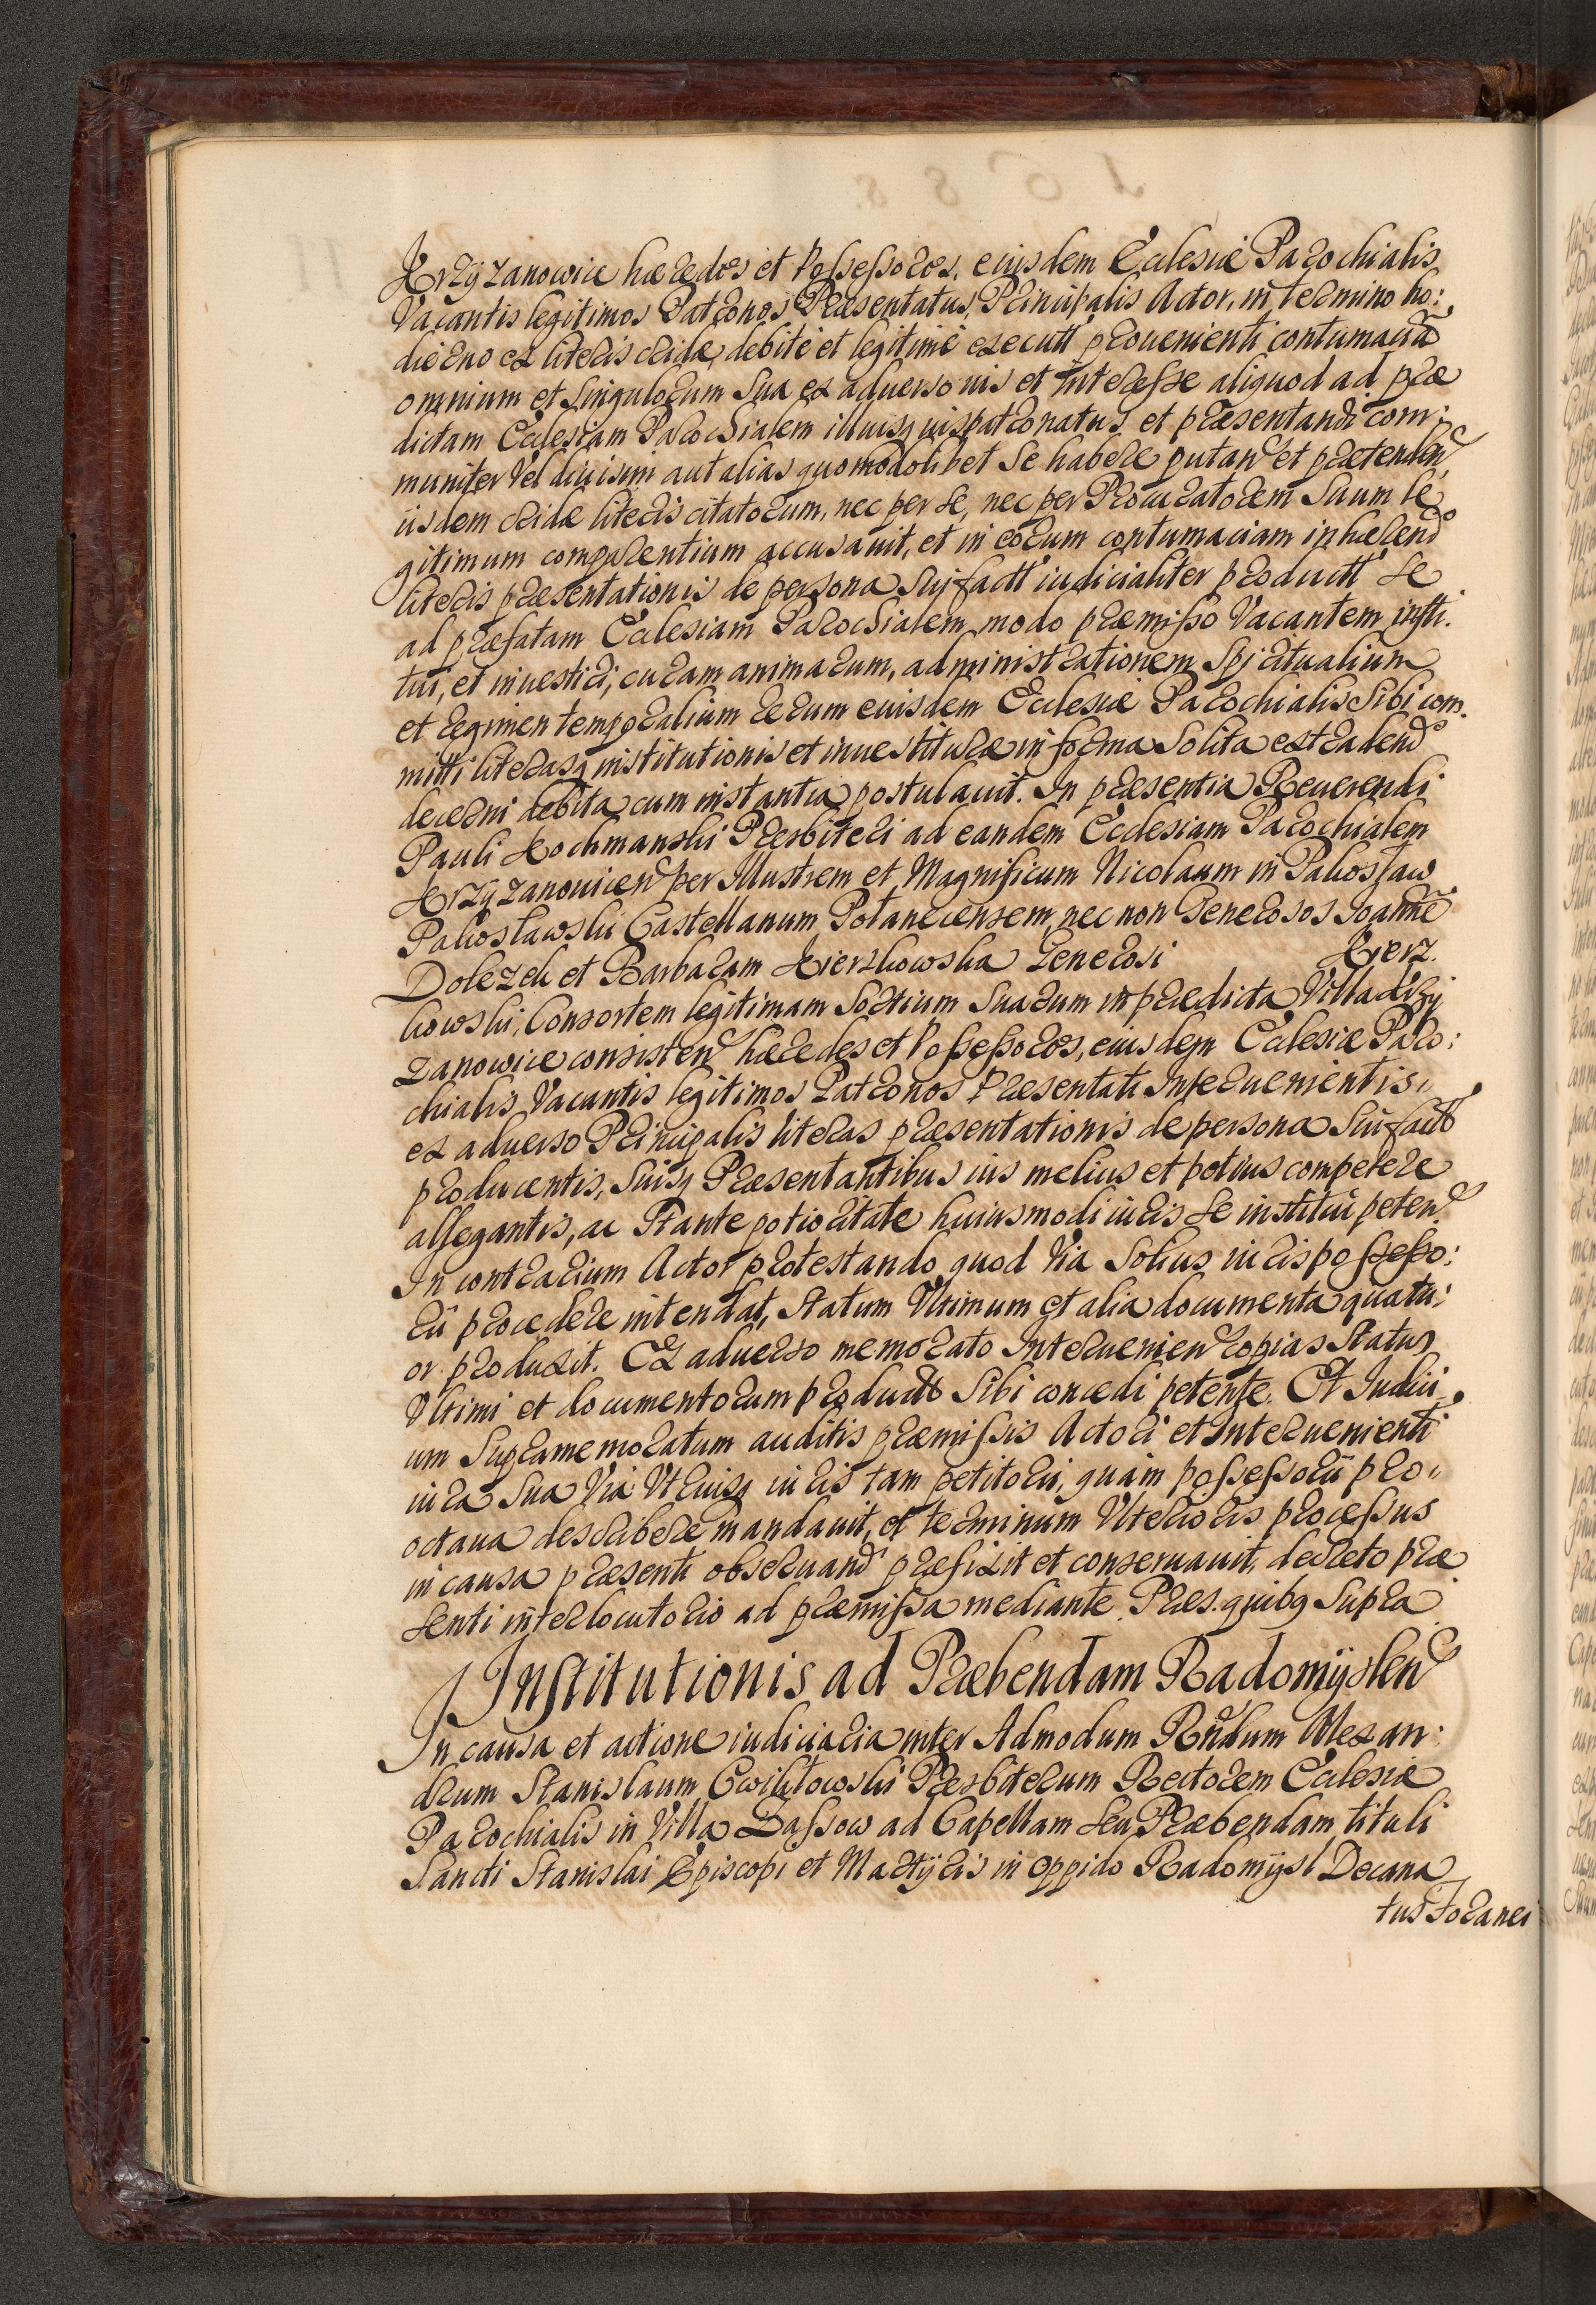 Krzÿzanowice hæredes et Possessores, eiusdem Ecclesiæ Parochialis
Vacantis legitimos Patronos Præsentatus, Principalis Actor, in termino ho:
dierno ex literis cridæ, debitè et legitimè executt provenienti contumaciã
omnium et singulorum sua ex adverso ius et interesse aliquod ad præ
dictam Ecclesiam Parochialem illiusq iuspatronatus et præsentandi com:
muniter vel divisim aut alias quomodolibet se habere putañ et prætendeñ,
iisdem cridæ literis citatorum, nec per se, nec per Procuratorem suum le
gitimum comparentium accusavit, et in eorum contumaciam inhærendo
literis præsentationis de persona sui factt iudicialiter productt se
ad præfatam Ecclesiam Parochialem modo præmisso Vacantem insti:
tui, et investiri, curam animarum, administrationem spiritualium
et regimen temporalium rerum eiusdem Ecclesiæ Parochialis sibi com:
mitti literasq institutionis et investituræ in forma solita extradendo
decerni debita cum instantia postulavit. In præsentia Reverendi
Pauli Kochmanski Præsbiteri ad eandem Ecclesiam Parochialem
Krzÿzanoviceñ per Illustrem et Magnificum Nicolaum in Pakosław
Pakosławski Castellanum Połanecensem, nec non Generosos Joannẽ
Dolezek et Barbaram Kierzkowska Generosi Kierz:
kowski, Consortem legitimam sortium suarum in prædicta Villa Krzÿ
zanowice consisteñ hæredes et Possessores, eiusdem Ecclesiæ Paro:
chialis Vacantis legitimos Patronos Præsentati Intervenientis,
ex adverso Principalis literas præsentationis de persona sui factt
producentis, suisq Præsentantibus ius melius et potius competere
allegantis, ac stante potioritate huiusmodi iuris se institui peteñ
In contrarium Actor protestando quod via solius iuris possesso:
rii procedere intendat, statum Vltimum et alia documenta quatu:
or produxit. Ex adverso memorato Intervenieñ copias status
Vltimi et documentorum productt sibi concedi petente. Et Iudici
um supramemoratum auditis præmissis Actori et Intervenienti
iura sua via Vtriusq iuris tam petitorii, quam possessorii pro
octava describere mandavit, et terminum Vlterioris processus
in causa præsenti observand præfixit et conservavit, decreto præ
senti interlocutorio ad præmissa mediante. Præs. quibq supra
Institutionis ad Præbendam Radomÿsleñ
In causa et actione iudiciaria inter Admodum Rndum Alexan:
drum Stanislaum Cwiklowski Præsbiterum Rectorem Ecclesiæ
Parochialis in Villa Dassow ad Capellam seu Præbendam tituli
Sancti Stanislai Episcopi et Martÿris in oppido Radomÿsl Decana
tus Foranei